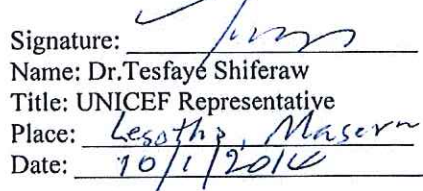 Signature:
Name: Dr.Tesfaye Shiferaw
Title: UNICEF Representative
Place: Lesotho, Maseru
Date: 10/1/